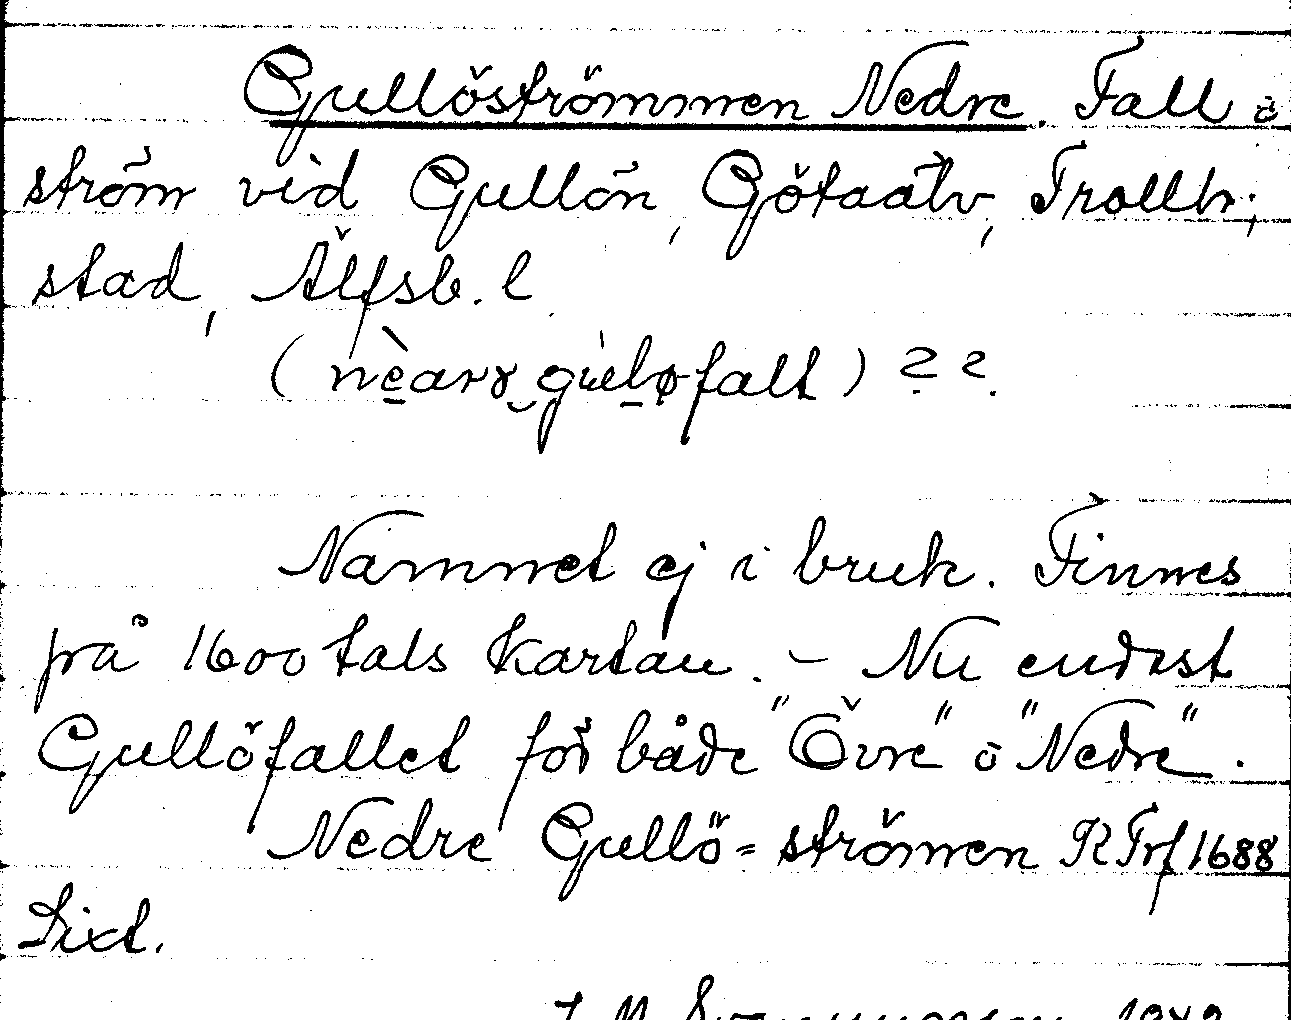 Gullöströmmen Nedre. Fall o
ström vid Gullön, Götaälv, Trollh:
stad, Älfsb. l
(nèarɤ gùløfalt) ? ?.
Namnet ej i bruk. Finnes
på 1600 tals kartan. – Nu endast
Gullöfallet för både "Övre" o "Nedre".
Nedre Gullö=strömen KTrf 1688
Lixt.